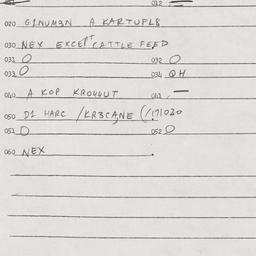 012
020 G1NUM3N A KARTUFL8
030 NEX EXCEPT CATTLE FEED
031 O 032 O
033 O 034 QH
040 A KOP KRO44UT 041 —
050 D1 HARC /KR3CANE (/171020
051 O 052 O
060 NEX .